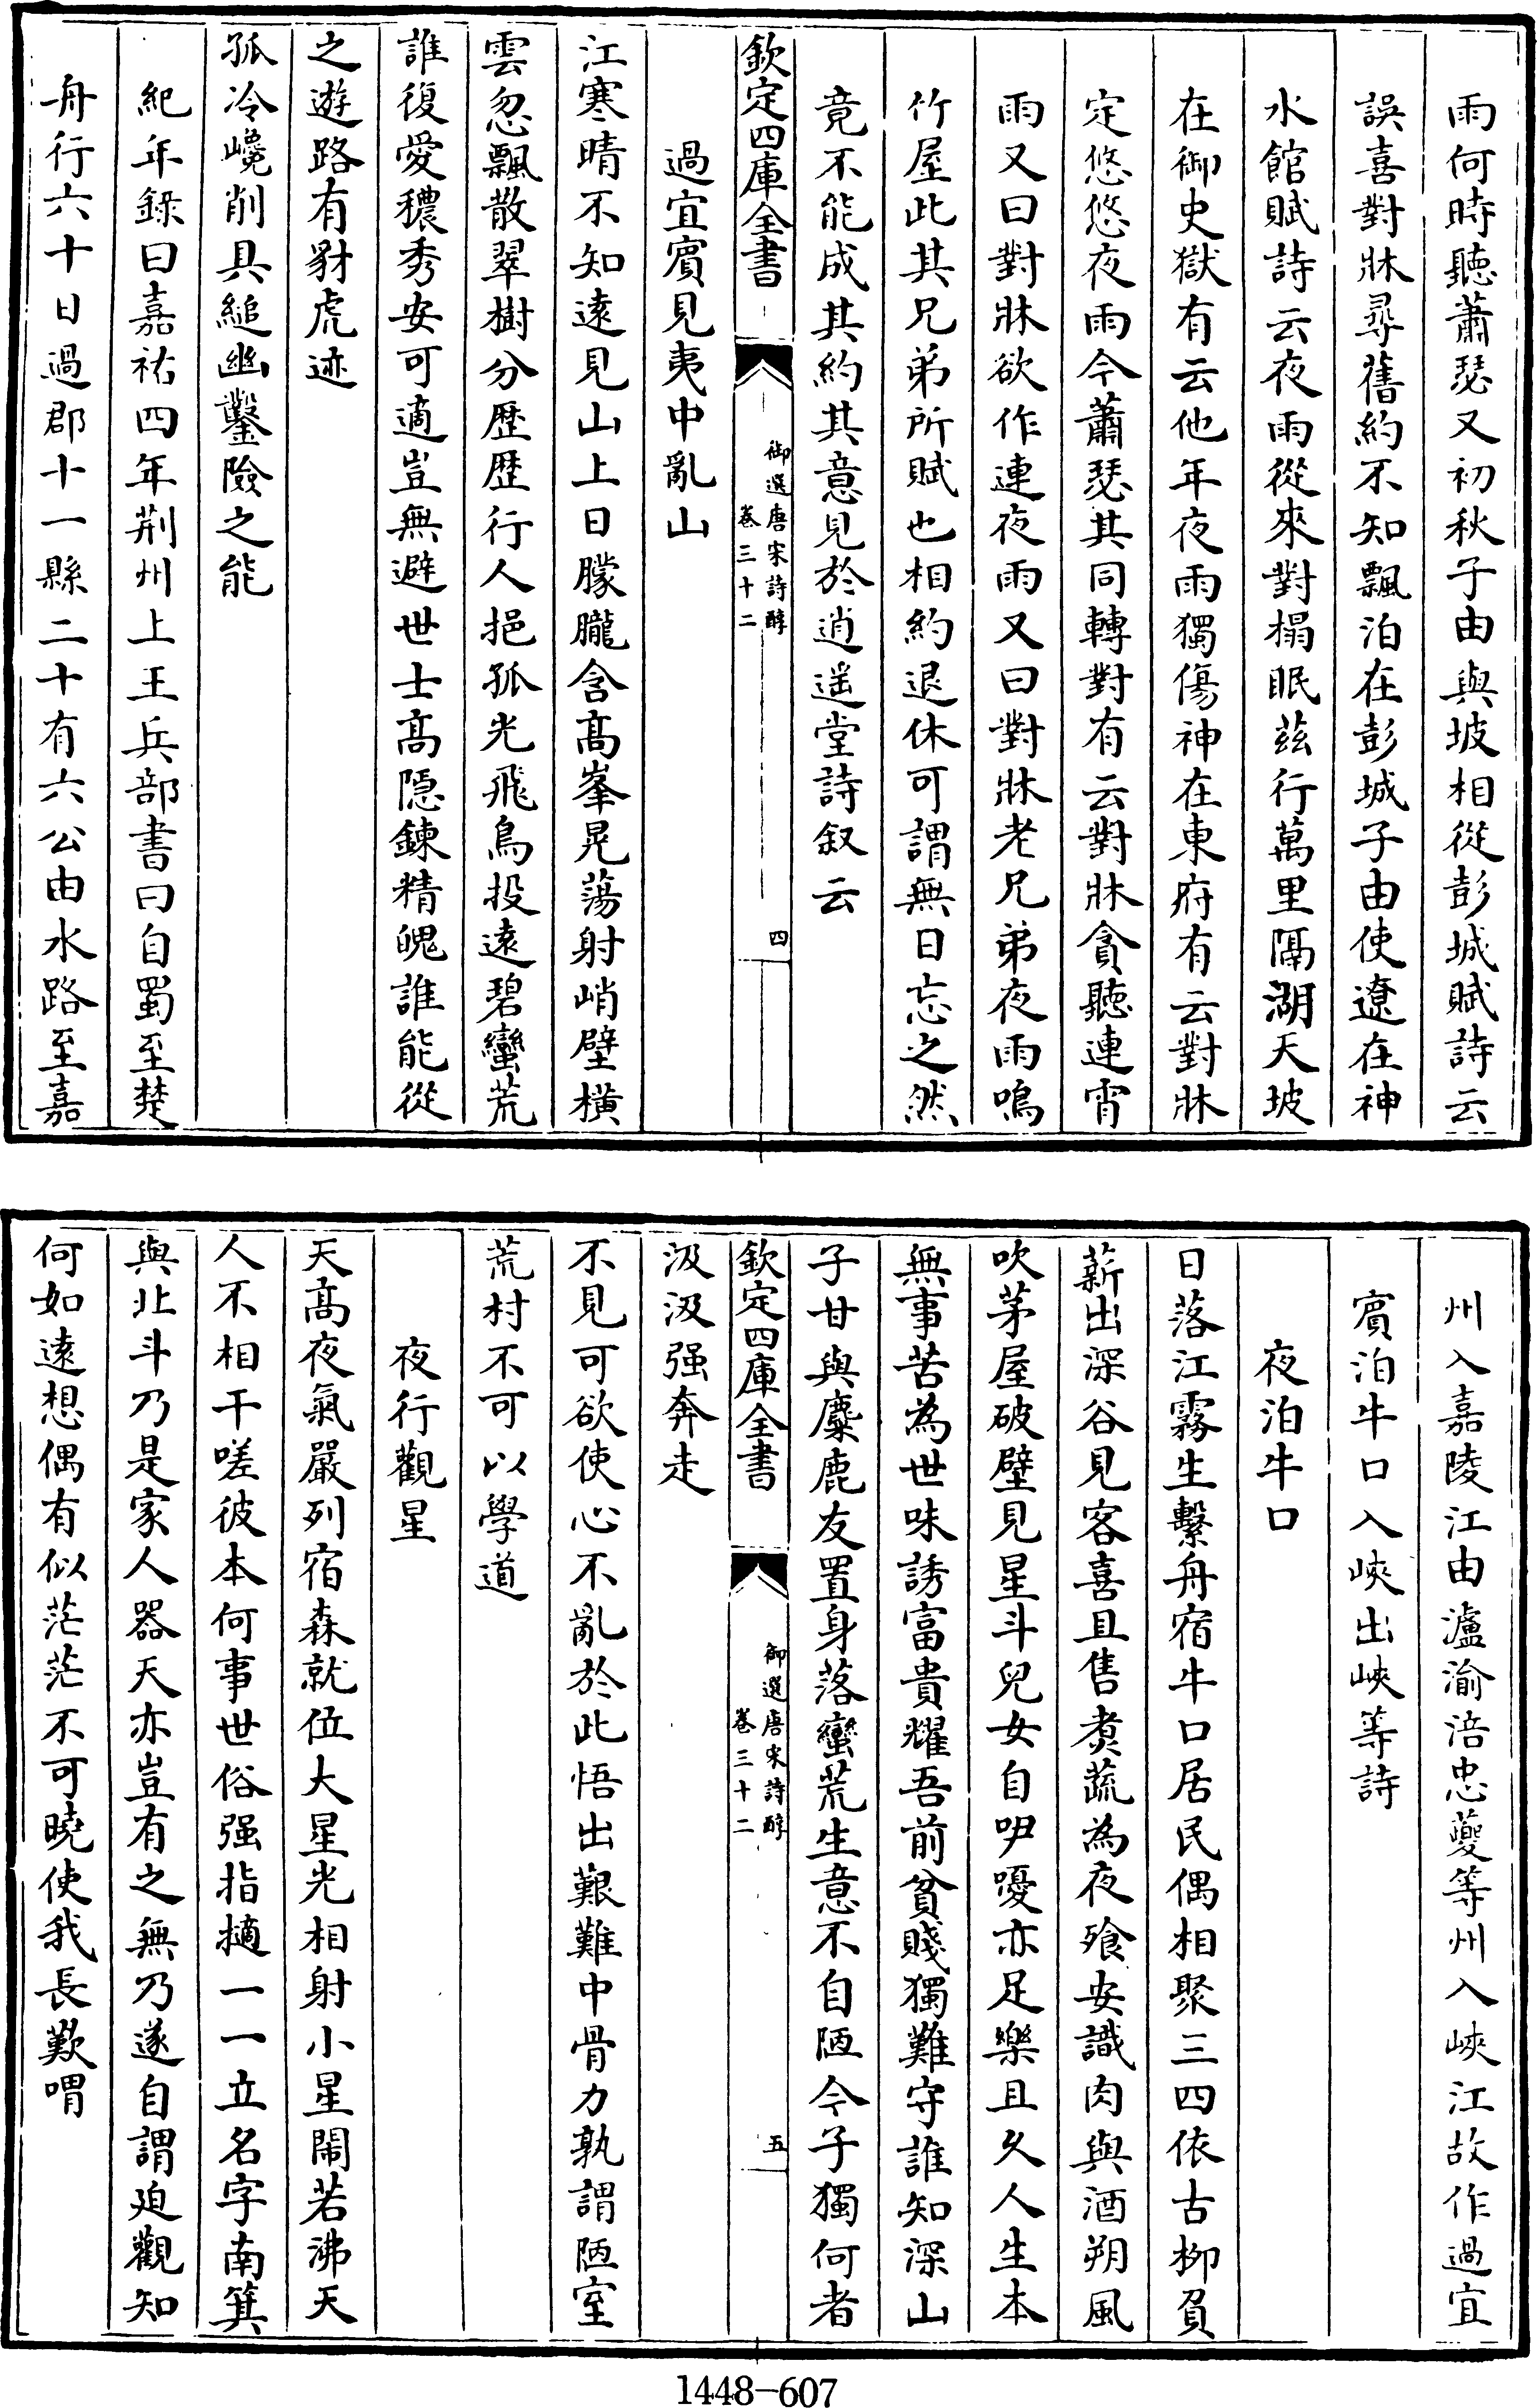 雨何時聽蕭瑟又初秋子由與坡相從彭城賦詩云
誤喜對牀尋舊約不知飄泊在彭城子由使遼在神
水館賦詩云夜雨從來對榻眠茲行萬里隔湖天坡
在御史獄有云他年夜雨獨傷神在東府有云對牀
定悠悠夜雨今蕭瑟其同轉對有云對牀貪聽連宵
雨又曰對牀欲作連夜雨又曰對牀老兄弟夜雨鳴
竹屋此其兄弟所賦也相約退休可謂無日忘之然
竟不能成其約其意見於逍遥堂詩叙云
欽定四庫全書
御選唐宋詩醇
卷三十二
四
過宜賓見夷中亂山
江寒晴不知遠見山上日朦朧含高峯晃蕩射峭壁橫
雲忽飄散翠樹分歷歷行人挹孤光飛鳥投遠碧蠻荒
誰復愛穠秀安可適豈無避世士高隱鍊精魄誰能從
之遊路有豺虎迹
孤冷巉削具縋幽鑿險之能
紀年錄曰嘉祐四年荆州上王兵部書曰自蜀至楚
舟行六十日過郡十一縣二十有六公由水路至嘉
州入嘉陵江由瀘渝涪忠夔等州入峽江故作過宜
賓泊牛口入峽出峽等詩
夜泊牛口
日落江霧生繫舟宿牛口居民偶相聚三四依古柳負
薪出深谷見客喜且售煑蔬為夜飱安識肉與酒朔風
吹茅屋破壁見星斗兒女自呼嚘亦足樂且久人生本
無事苦為世味誘富貴耀吾前貧賤獨難守誰知深山
子甘與麋鹿友置身落蠻荒生意不自陋今子獨何者
欽定四庫全書
御選唐宋詩醇
卷三十二
五
汲汲强奔走
不見可欲使心不亂於此悟出艱難中骨力孰謂陋室
荒村不可以學道
夜行觀星
天高夜氣嚴列宿森就位大星光相射小星閙若沸天
人不相干嗟彼本何事世俗强指擿一一立名字南箕
與北斗乃是家人器天亦豈有之無乃遂自謂廹觀知
何如遠想偶有似茫茫不可曉使我長歎喟
1448-607